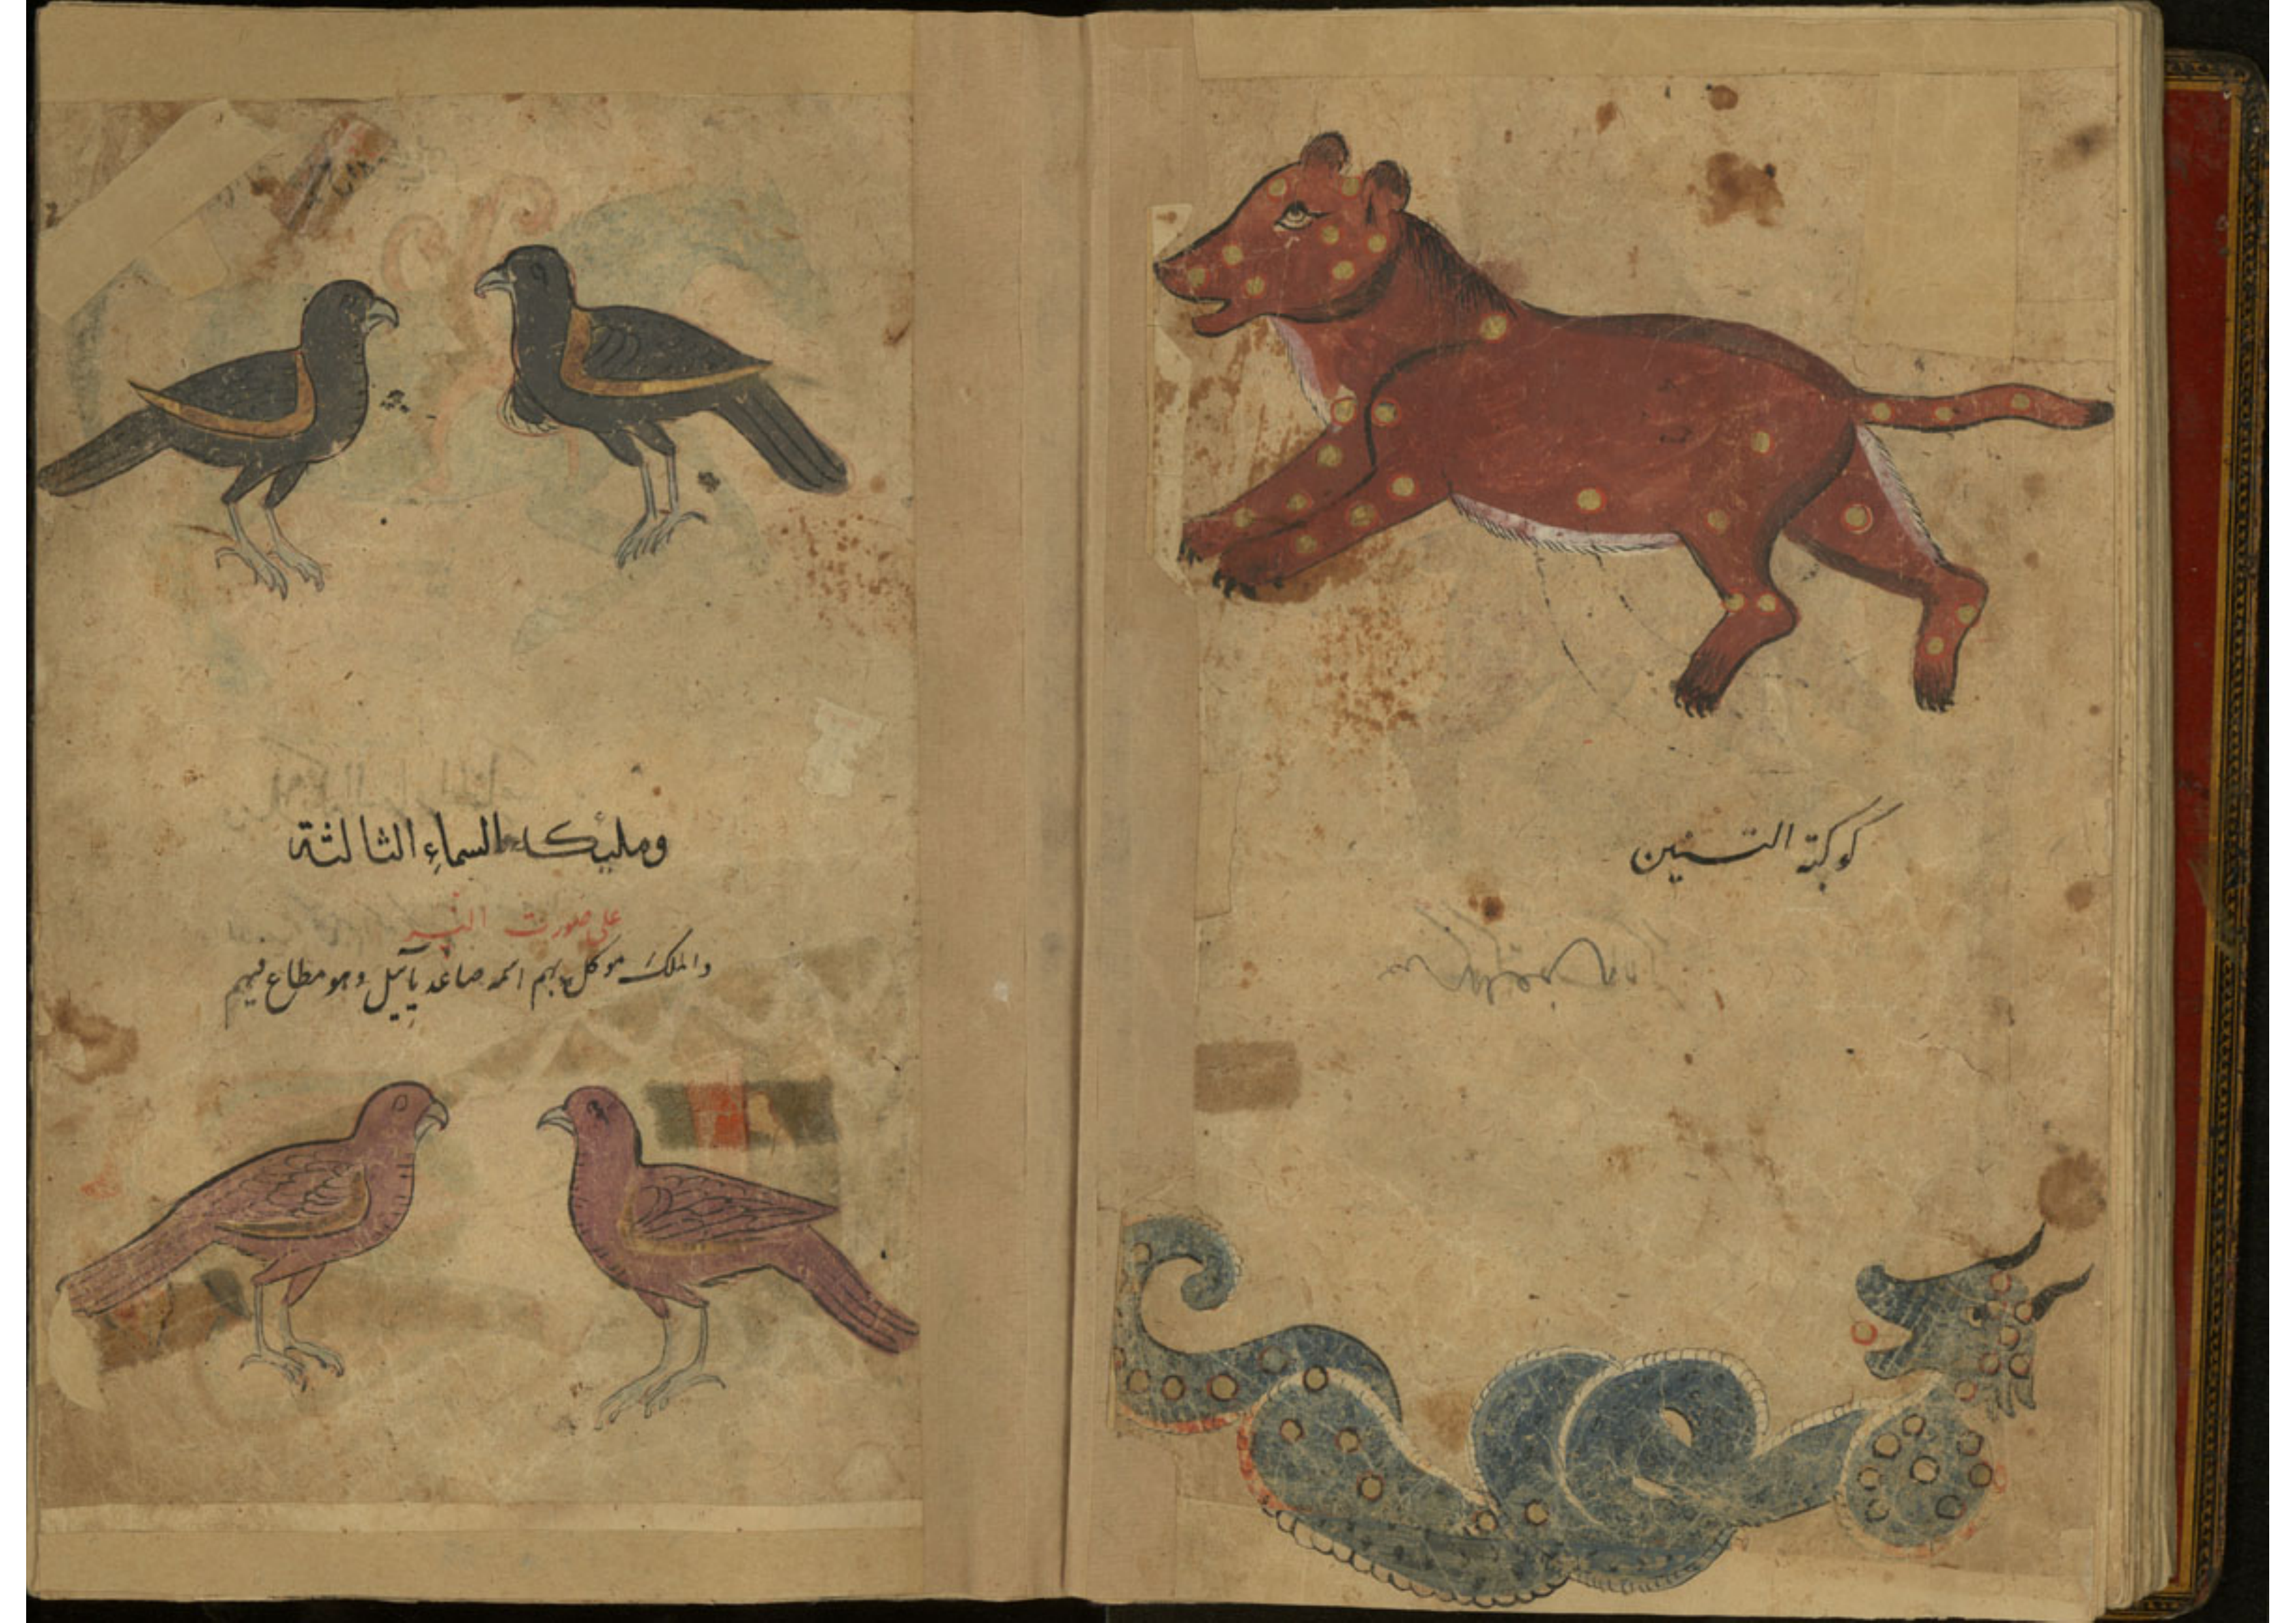 كوكبة التنين
ومليكة السماء الثالثة
على صورت النسر
والملك موكل بهم اسمه صاعدياييل وهو مطاع فيهم